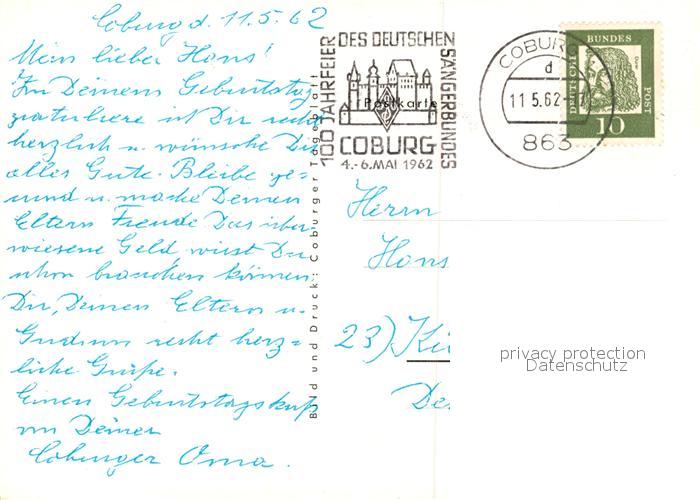 Coburg d. 11.5.62
Mein lieber Hans!
Zu Deinem Geburtstag
gratuliere ich Dir recht
herzlich u. wünsche Dir
alles Gute. Bleibe ge=
sund u. mache Deinen
Eltern Freude Das über
wiesene Geld wirst Du
schon brauchen können.
Dir, Deinen Eltern u.
Gudrun recht herz=
liche Grüße.
Einen Geburtstagskuß
von Deiner
Coburger Oma.
Bild und Druck: Coburger Tageblatt
100 JAHRFEIER
DES DEUTSCHEN
SÄNGERBUNDES
Postkarte
COBURG
4.-6. MAI 1962
COBURG
d
11.5.62
863
BUNDES
DEUTSCHE
POST
Dürer
10
Herrn
Hans
23)
privacy protection
Datenschutz